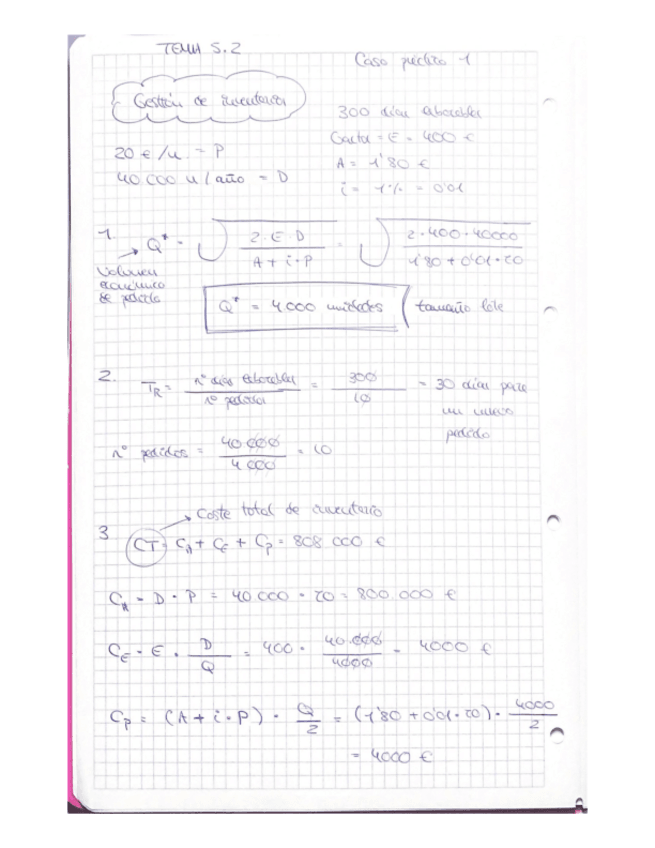 TEMA 5.2
Caso práctico 1
Gestión de inventarios
300 días laborables
Gastos = E = 400 €
20 € /u. = P
A = 1'80 €
40 000 u / año = D
i = 1% = 0'01
1. Q* = √ 2·E·D / A + i·P = √ 2·400·40000 / 1'80 + 0'01·20
Volumen
económico
de pedido
Q* = 4000 unidades
tamaño lote
2. TR = nº días laborables / nº pedidos = 300 / 10 = 30 días para
un nuevo
pedido
nº pedidos = 40 000 / 4 000 = 10
Coste total de inventario
3 CT = CA + CE + CP = 808 000 €
CA = D · P = 40 000 · 20 = 800.000 €
CE = E · D / Q = 400 · 40.000 / 4000 = 4000 €
CP = (A + i·P) · Q / 2 = (1'80 + 0'01·20) · 4000 / 2
= 4000 €